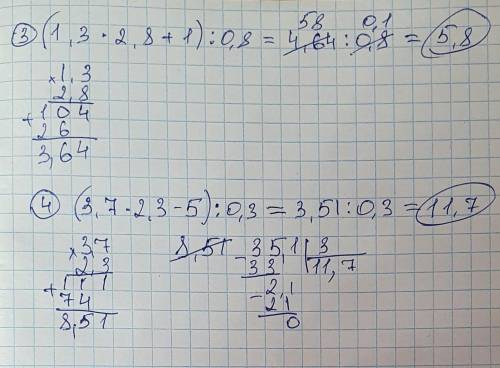 58 0,1
③ (1,3 · 2,8 + 1) : 0,8 = 4,64 : 0,8 = 5,8
× 1,3
2,8
+ 104
26
3,64
④ (3,7 · 2,3 − 5) : 0,3 = 3,51 : 0,3 = 11,7
× 37
2,3
+ 111
74
8,51
8,51
− 35,1 | 3
33 | 11,7
− 2,1
21
0